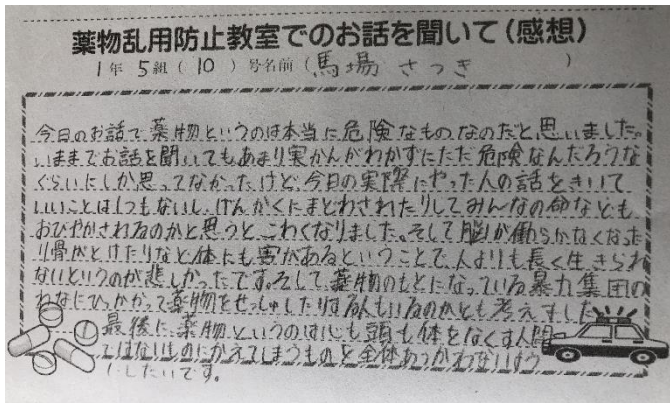 薬物乱用防止教室でのお話を聞いて(感想)
1年 5組(10)号名前(馬場 さつき)
今日のお話で薬物というのは本当に危険なものなのだと思いました。
いままでお話を聞いてもあまり実かんがわかずにただ危険なんだろうな
ぐらいにしか思ってなかったけど、今日の実際にやった人の話をきいて
いいことは1つもないし、げんかくにまどわされたりしてみんなの命なども
おびやかされるのかと思うとこわくなりました。そして脳が働らかなくなった
り骨がとけたりなど体にも害があるということで人よりも長く生きられ
ないというのが悲しかったです。そして、薬物のもとになっている暴力集団の
わなにひっかかって薬物をせっしゅしたりする人もいるのかとも考えました。
最後に、薬物というのは心も頭も体をなくす人間
ではないものにかえてしまうものと全体あつかわないよう
にしたいです。